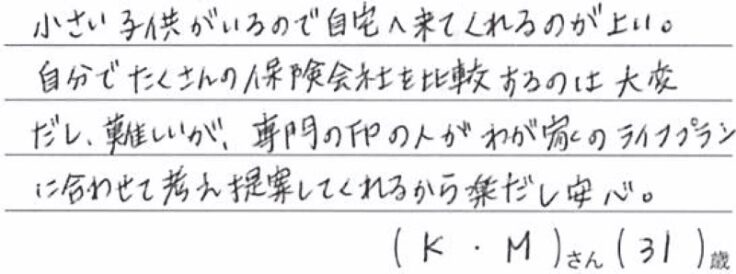 小さい子供がいるので自宅へ来てくれるのが上い。
自分でたくさんの保険会社を比較するのは大変
だし、難しいが、専門のFPの人がわが家のライフプラン
に合わせて考え提案してくれるから楽だし安心。
(K・M)さん(31)歳